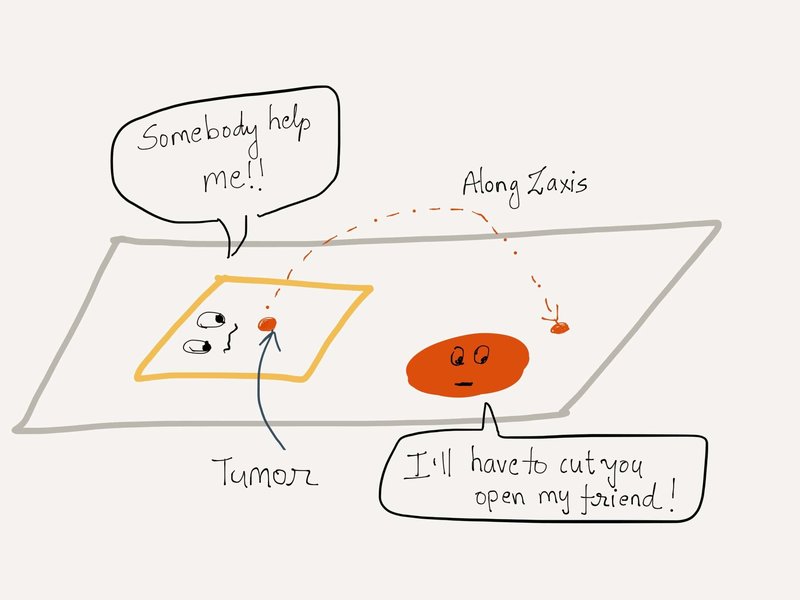 Somebody help
me!!
Along Zaxis
Tumor
I'll have to cut you
open my friend!